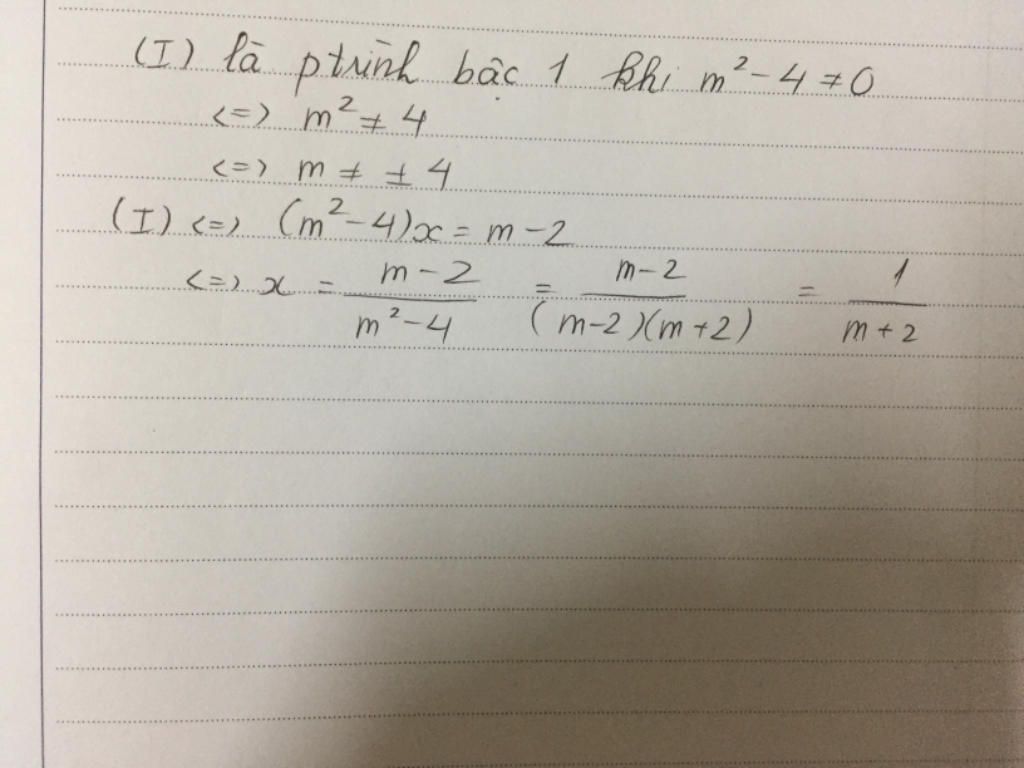 (I) là ptrình bậc 1 khi m² - 4 ≠ 0
<=> m² ≠ 4
<=> m ≠ ± 4
(I) <=> (m² - 4)x = m - 2
<=> x = (m - 2)/(m² - 4) = (m - 2)/((m - 2)(m + 2)) = 1/(m + 2)